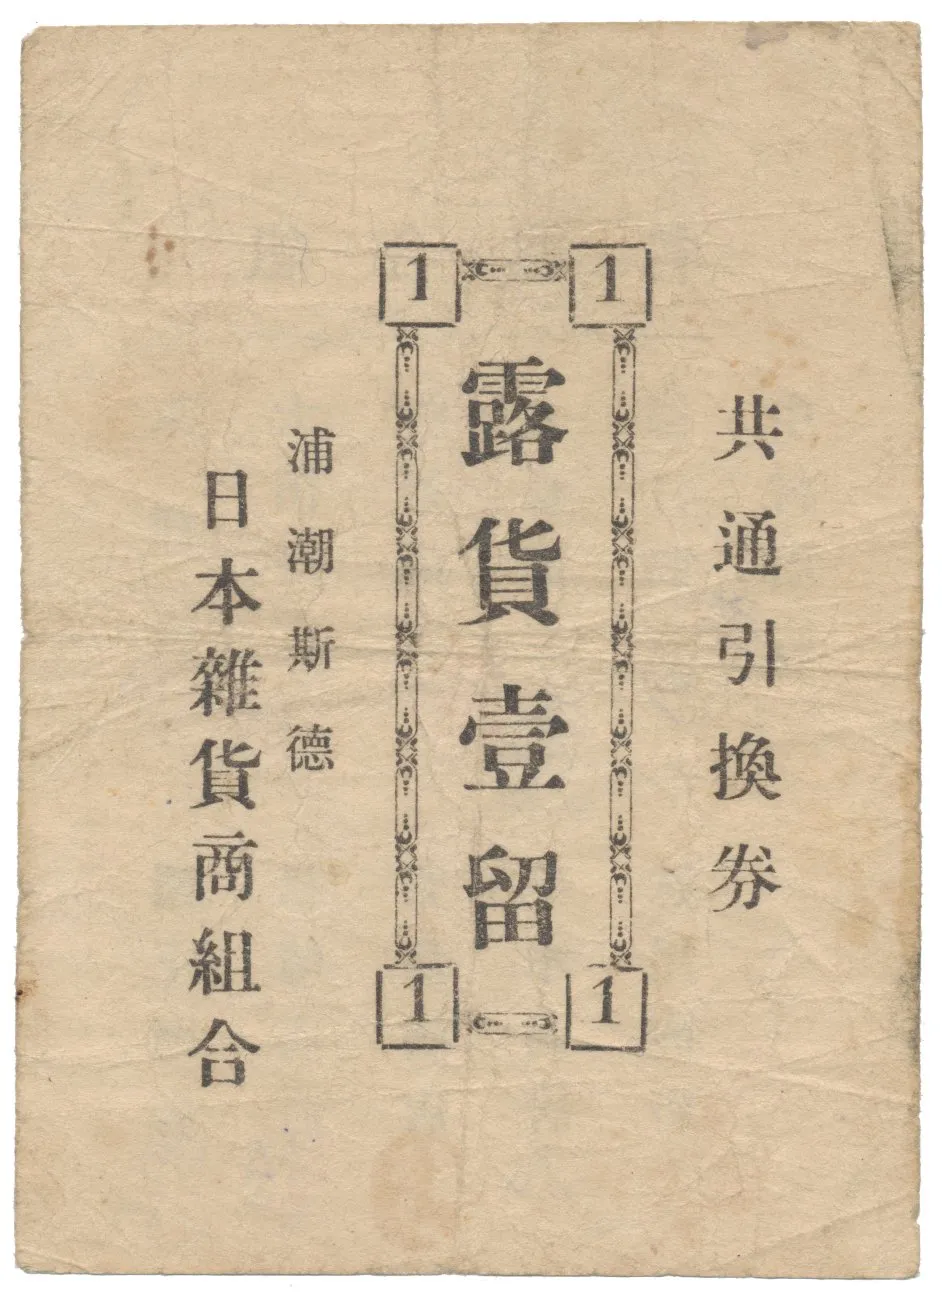 共通引換券
1 1
露貨壹留
1 1
浦潮斯德
日本雜貨商組合